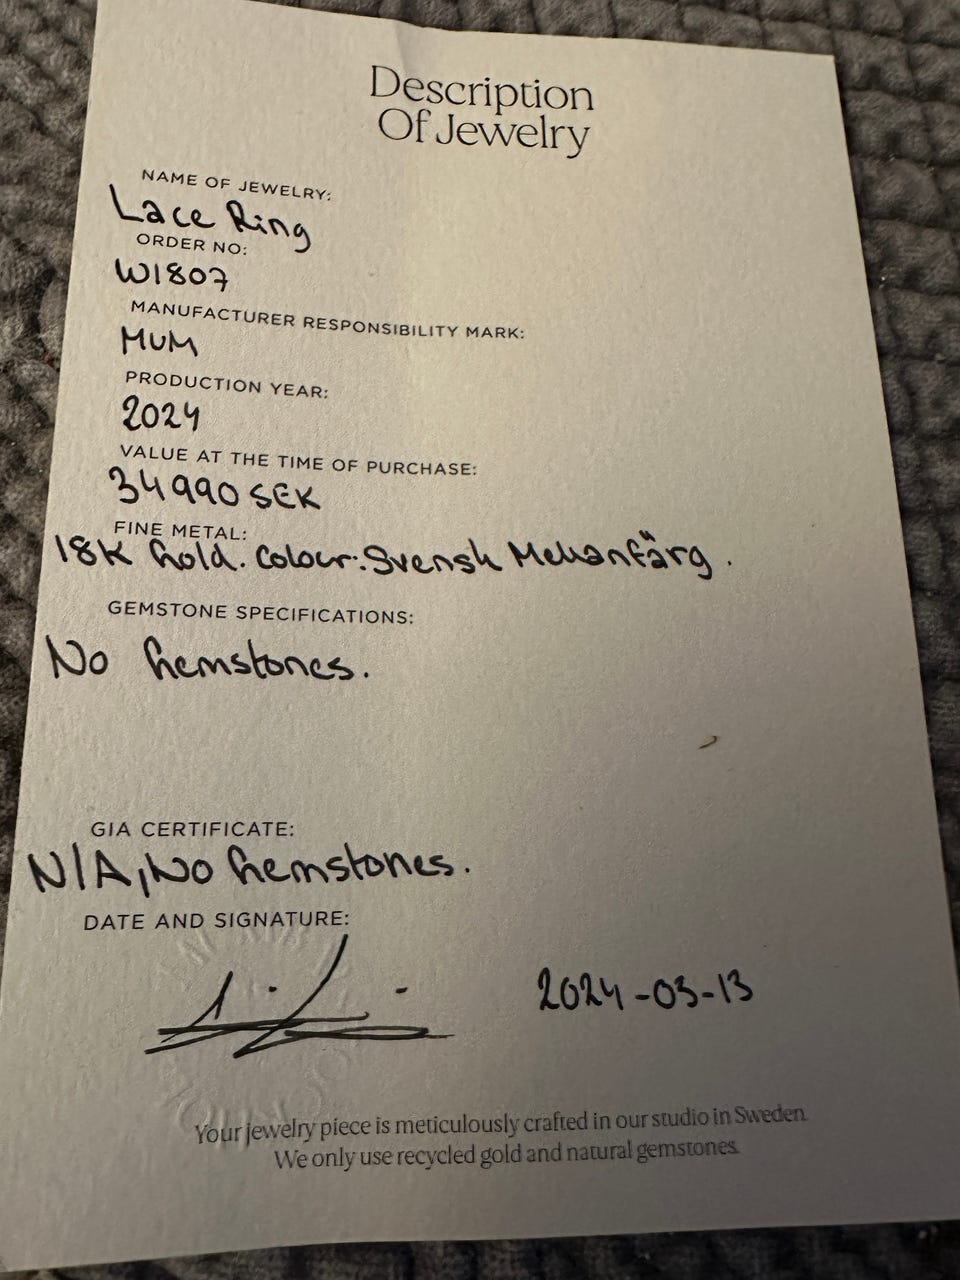 Description
Of Jewelry
NAME OF JEWELRY:
Lace Ring
ORDER NO:
W1807
MANUFACTURER RESPONSIBILITY MARK:
MUM
PRODUCTION YEAR:
2024
VALUE AT THE TIME OF PURCHASE:
34990 SEK
FINE METAL:
18K Gold. Colour: Svensk Mellanfärg.
GEMSTONE SPECIFICATIONS:
No Gemstones.
GIA CERTIFICATE:
N/A, No Gemstones.
DATE AND SIGNATURE:
2024-03-13
Your jewelry piece is meticulously crafted in our studio in Sweden.
We only use recycled gold and natural gemstones.